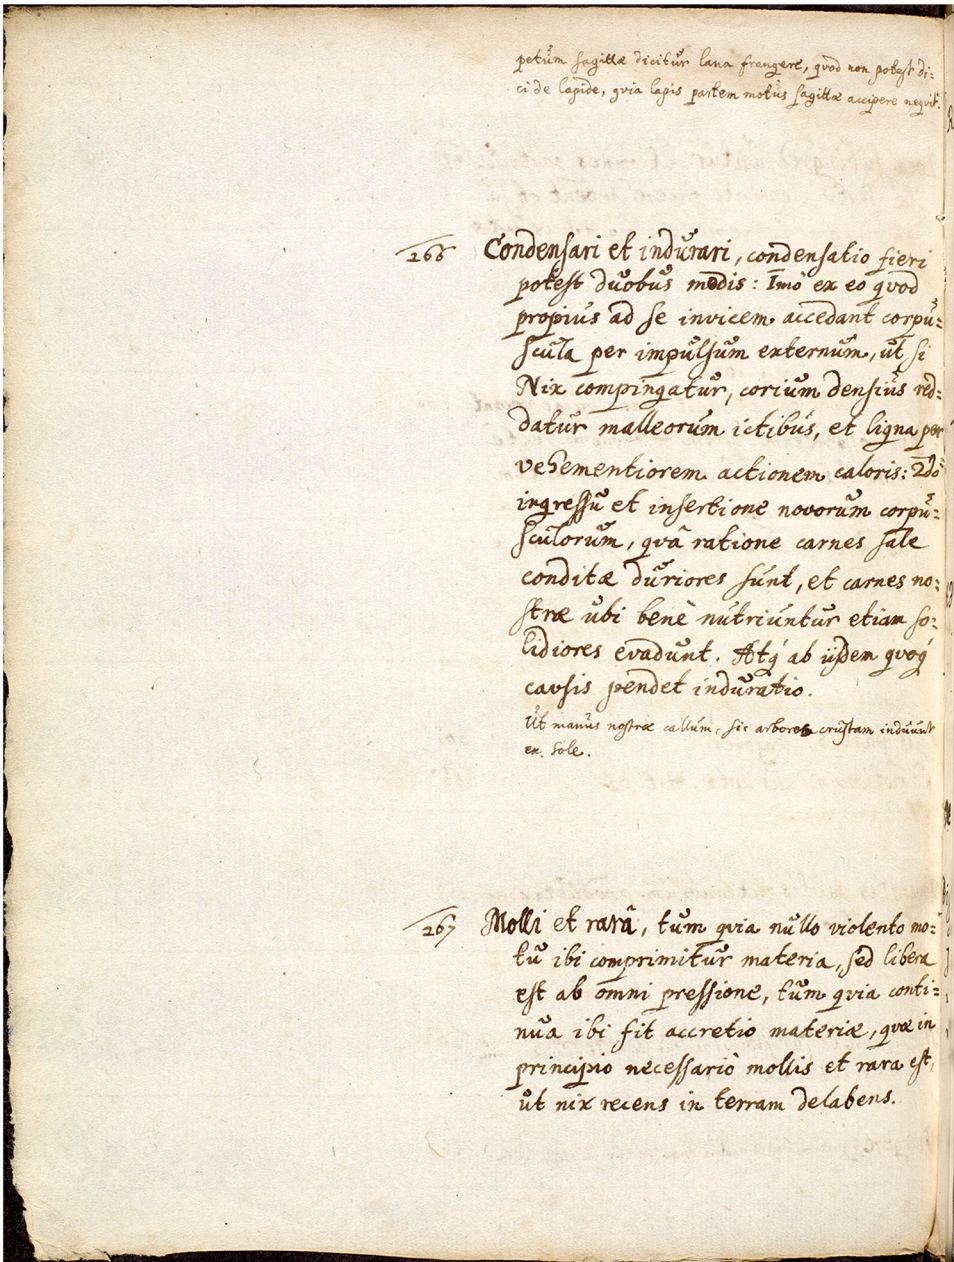 petum sagittæ dicitur lana frangere, quod non potest di:
ci de lapide, quia lapis partem motus sagittæ accipere nequit.
266 Condensari et indurari, condensatio fieri
potest duobus modis: Imò ex eo quod
propius ad se invicem accedant corpu:
scula per impulsum externum, ut si
Nix compingatur, corium densius red:
datur malleorum ictibus, et ligna per
vehementiorem actionem caloris: 2dò
ingressu et insertione novorum corpu:
sculorum, quâ ratione carnes sale
conditæ duriores sunt, et carnes no:
stræ ubi benè nutriuntur etiam so:
lidiores evadunt. Atq́ ab iisdem quoq́
causis pendet induratio.
Ut manus nostræ callum, sic arbores crustam induunt
ex Sole.
267 Molli et rarâ, tum quia nullo violento mo:
tu ibi comprimitur materia, sed libera
est ab omni pressione, tum quia conti:
nua ibi fit accretio materiæ, quæ in
principio necessariò mollis et rara est,
ut nix recens in terram delabens.